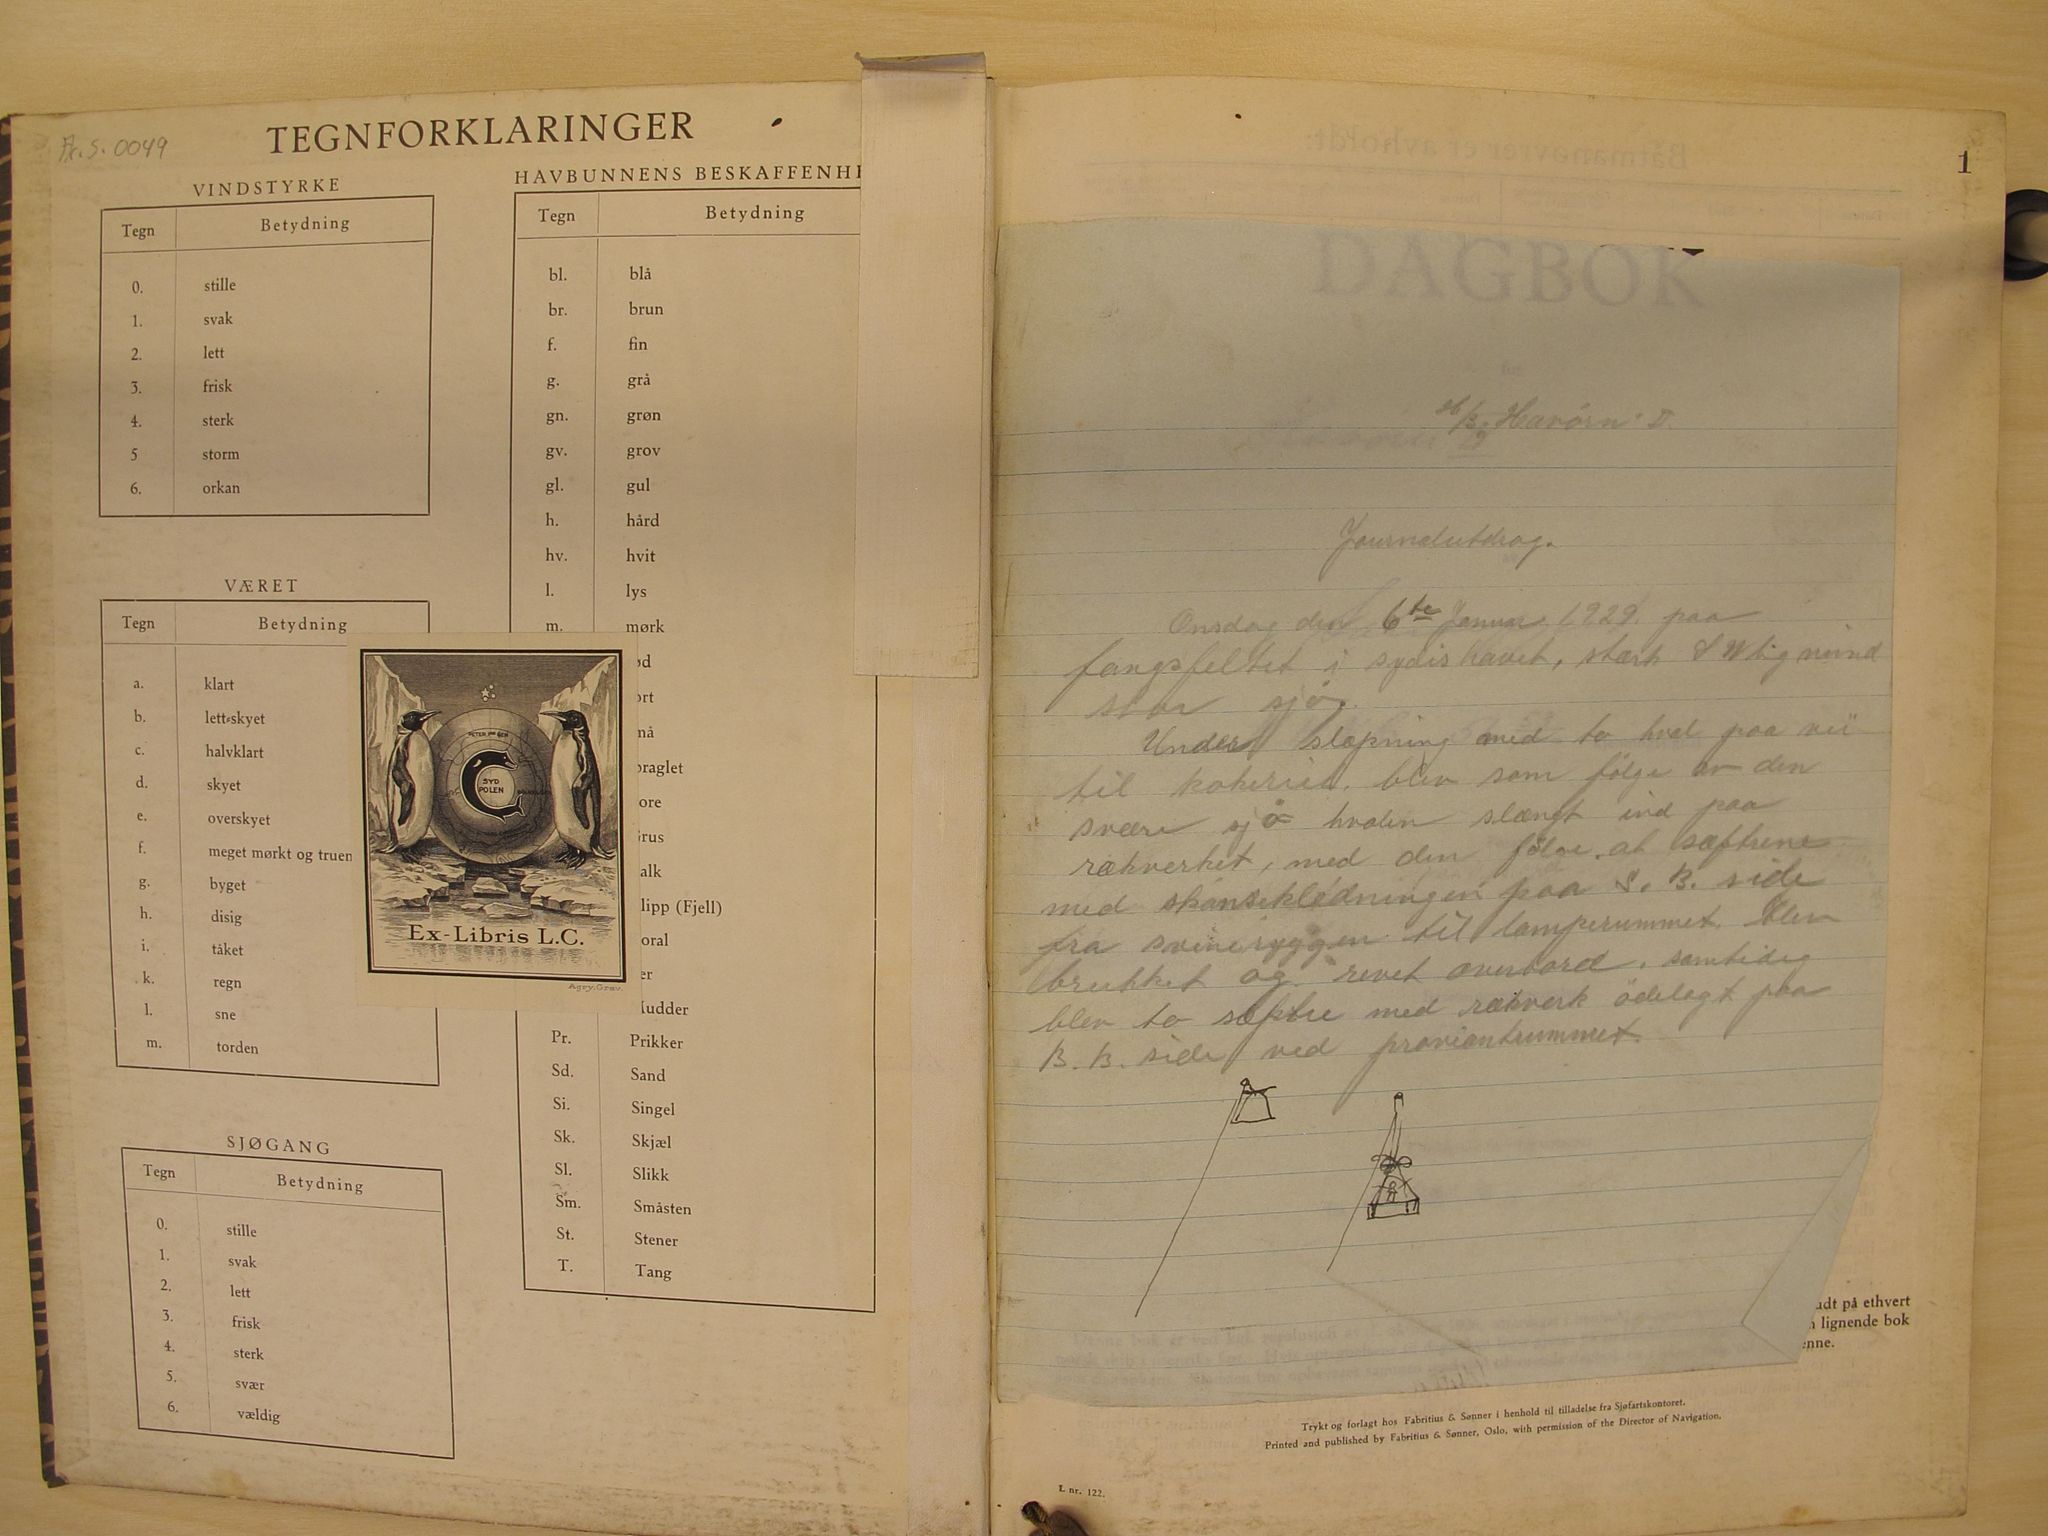 Fr. S. 0049
TEGNFORKLARINGER
VINDSTYRKE
Tegn Betydning
0. stille
1. svak
2. lett
3. frisk
4. sterk
5 storm
6. orkan
VÆRET
Tegn Betydning
a. klart
b. lett-skyet
c. halvklart
d. skyet
e. overskyet
f. meget mørkt og truen
g. byget
h. disig
i. tåket
k. regn
l. sne
m. torden
SJØGANG
Tegn Betydning
0. stille
1. svak
2. lett
3. frisk
4. sterk
5. svær
6. vældig
HAVBUNNENS BESKAFFENHE
Tegn Betydning
bl. blå
br. brun
f. fin
g. grå
gn. grøn
gv. grov
gl. gul
h. hård
hv. hvit
l. lys
m. mørk
ød
ort
nå
praglet
ore
Grus
alk
lipp (Fjell)
oral
er
Mudder
Pr. Prikker
Sd. Sand
Si. Singel
Sk. Skjæl
Sl. Slikk
Sm. Småsten
St. Stener
T. Tang
SYD
POLEN
Ex-Libris L.C.
Agry. Grav.
1
Båtmanøvrer er avholdt:
DAGBOK
H/B. Havörn II.
Journalutdrag.
Onsdag den 6te Januar 1929 paa
fangsfeltet i sydishavet, stærk S W lig vind
stor sjö.
Under slæpning med to hval paa vei
til kokeriet, blev som fölge av den
svære sjö hvalen slængt ind paa
rækverket, med den fölge at sæftrene
med skansekledningen paa S. B. side
fra svineryggen til lamperummet blev
brukket og revet overbord, samtidig
blev to sæftre med rækverk ödelagt paa
B. B. side ved proviantrummet.
udt på ethvert
n lignende bok
enne.
Trykt og forlagt hos Fabritius & Sønner i henhold til tilladelse fra Sjøfartskontoret.
Printed and published by Fabritius & Sønner, Oslo, with permission of the Director of Navigation.
L nr. 122.